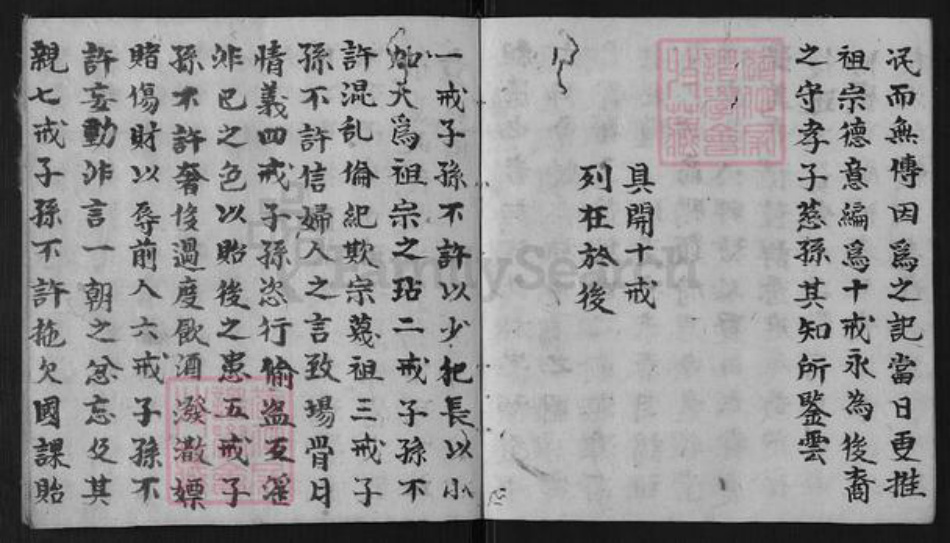 泯而無傳因爲之記當日更推
祖宗德意編爲十戒永為後裔
之守孝子慈孫其知所鑒雲
具開十戒
列在於後
一戒子孫不許以少犯長以小
加大爲祖宗之玷二戒子孫不
許混乱倫紀欺宗蔑祖三戒子
孫不許信婦人之言致場骨月
情義四戒子孫恣行偷盜互淫
非已之色以貽後之患五戒子
孫不許奢侈過度飲酒潑撒嫖
賭傷財以辱前人六戒子孫不
許妄動非言一朝之忿忘及其
親七戒子孫不許拖欠國課貽
FamilySearch